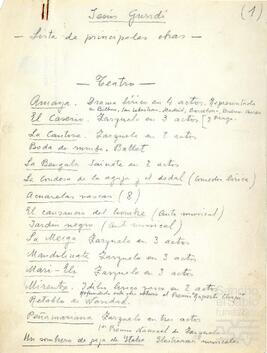 Jesús Guridi (1)
- Lista de principales obras -
- Teatro -
Amaya. Drama lírico en 4 actos. Representada
en Bilbao, San Sebastián, Madrid, Barcelona, Buenos Aires
El Caserío. Zarzuela en 3 actos y Praga.
La Cautiva. Zarzuela en 2 actos
Boda de rumbo. Ballet
La Bengala Sainete en 2 actos
La Condesa de la aguja y el dedal (comedia lírica)
Acuarelas vascas (8)
El causante del hombre (Auto musical)
Jardín negro (Aut. musical)
La Meiga Zarzuela en 3 actos
Mandolinata Zarzuela en 3 actos
Mari-Eli Zarzuela en 3 actos
Mirentxu. Idilio lírico vasco en 2 actos
Retablo de Navidad.
Peñamariana Zarzuela en tres actos
1er Premio Nacional de Zarzuela
Un sombrero de paja de Italia Ilustraciones musicales